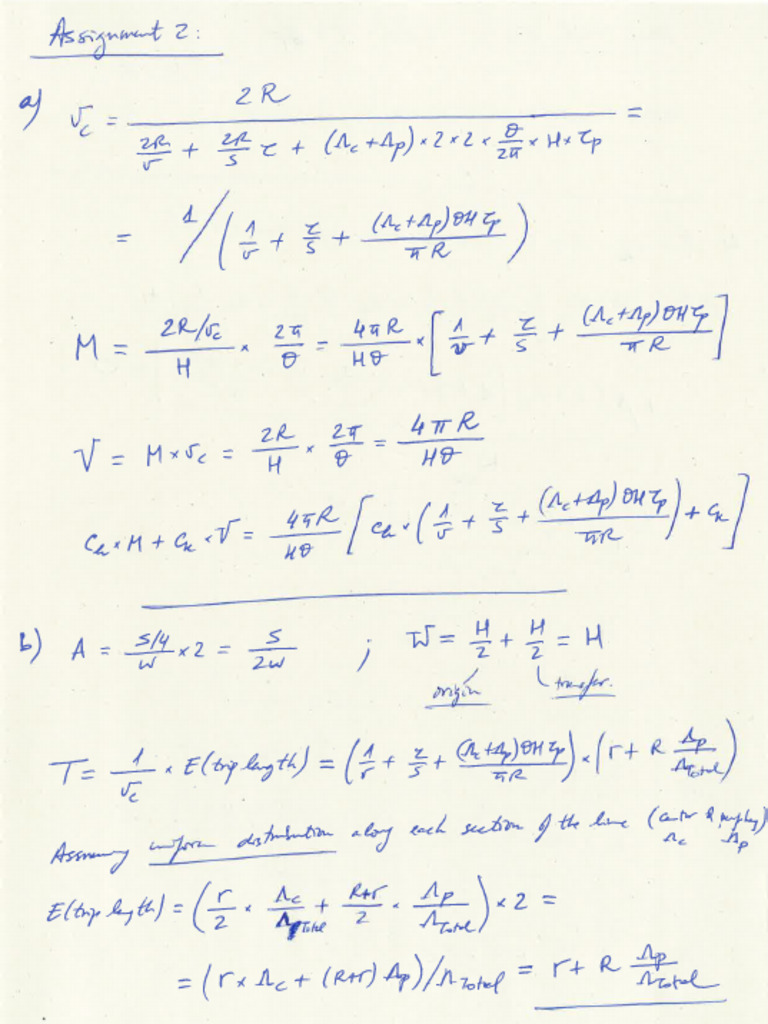 Assignment 2:
a) v_c = 2R / (2R/v + 2R/s τ + (Λ_c+Λ_p) × 2 × 2 × θ/2π × H × τ_p) =
= 1/(1/v + τ/s + (Λ_c+Λ_p)θHτ_p / πR)
M = (2R/v_c)/H × 2π/θ = 4πR/Hθ × [1/v + τ/s + (Λ_c+Λ_p)θHτ_p / πR]
V = M × v_c = 2R/H × 2π/θ = 4πR/Hθ
C_a × M + C_k × V = 4πR/Hθ [C_a × (1/v + τ/s + (Λ_c+Λ_p)θHτ_p / πR) + C_k]
b) A = (s/4)/w × 2 = s/2w ; W = H/2 + H/2 = H
origin transfer.
T = 1/v_c × E(trip length) = (1/v + τ/s + (Λ_c+Λ_p)θHτ_p / πR) × (r + R Λ_p/Λ_Total)
Assuming uniform distribution along each section of the line (center & periphery)
Λ_c Λ_p
E(trip length) = (r/2 × Λ_c/Λ_Total + (R+r)/2 × Λ_p/Λ_Total) × 2 =
= (r × Λ_c + (R+r) Λ_p)/Λ_Total = r + R Λ_p/Λ_Total